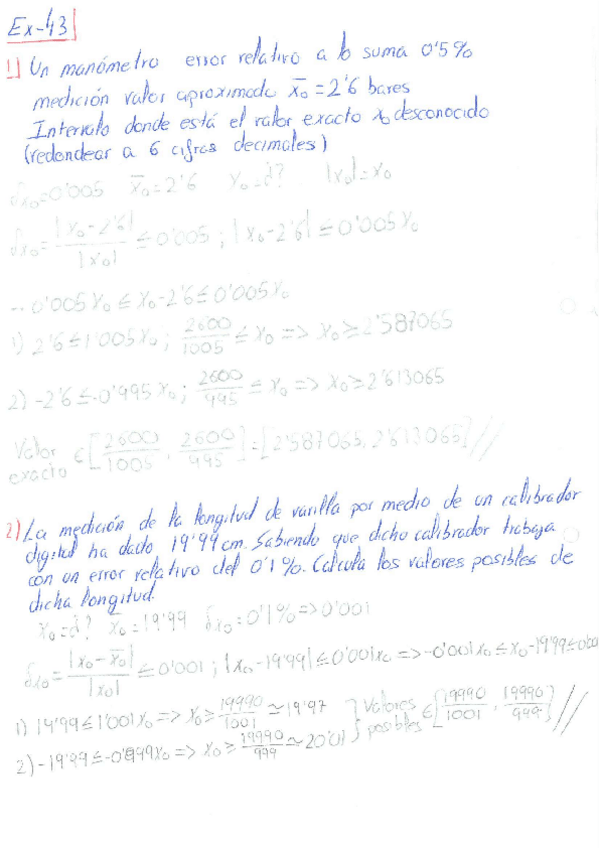 Ex-43
1) Un manómetro error relativo a lo suma 0'5%
medición valor aproximado x̄₀ = 2'6 bares
Intervalo donde está el valor exacto x₀ desconocido
(redondear a 6 cifras decimales)
δx₀ = 0'005 x̄₀ = 2'6 x₀ = ¿? |x₀| = x₀
δx₀ = |x₀ - 2'6| / |x₀| ≤ 0'005 ; |x₀ - 2'6| ≤ 0'005 x₀
- 0'005 x₀ ≤ x₀ - 2'6 ≤ 0'005 x₀
1) 2'6 ≤ 1'005 x₀ ; 2600/1005 ≤ x₀ => x₀ ≥ 2'587065
2) -2'6 ≤ -0'995 x₀ ; 2600/995 ≤ x₀ => x₀ ≥ 2'613065
Valor exacto ∈ [2600/1005 , 2600/995] = [2'587065, 2'613065] //
2) La medición de la longitud de varilla por medio de un calibrador
digital ha dado 19'99 cm. Sabiendo que dicho calibrador trabaja
con un error relativo del 0'1%. Calcula los valores posibles de
dicha longitud.
x₀ = ¿? x̄₀ = 19'99 δx₀ = 0'1% => 0'001
δx₀ = |x₀ - x̄₀| / |x₀| ≤ 0'001 ; |x₀ - 19'99| ≤ 0'001x₀ => -0'001x₀ ≤ x₀ - 19'99 ≤ 0'00
1) 19'99 ≤ 1'001 x₀ => x₀ ≥ 19990/1001 ≃ 19'97 } Valores posibles ∈ [19990/1001 , 19990/999] //
2) -19'99 ≤ -0'999x₀ => x₀ ≥ 19990/999 ≃ 20'01